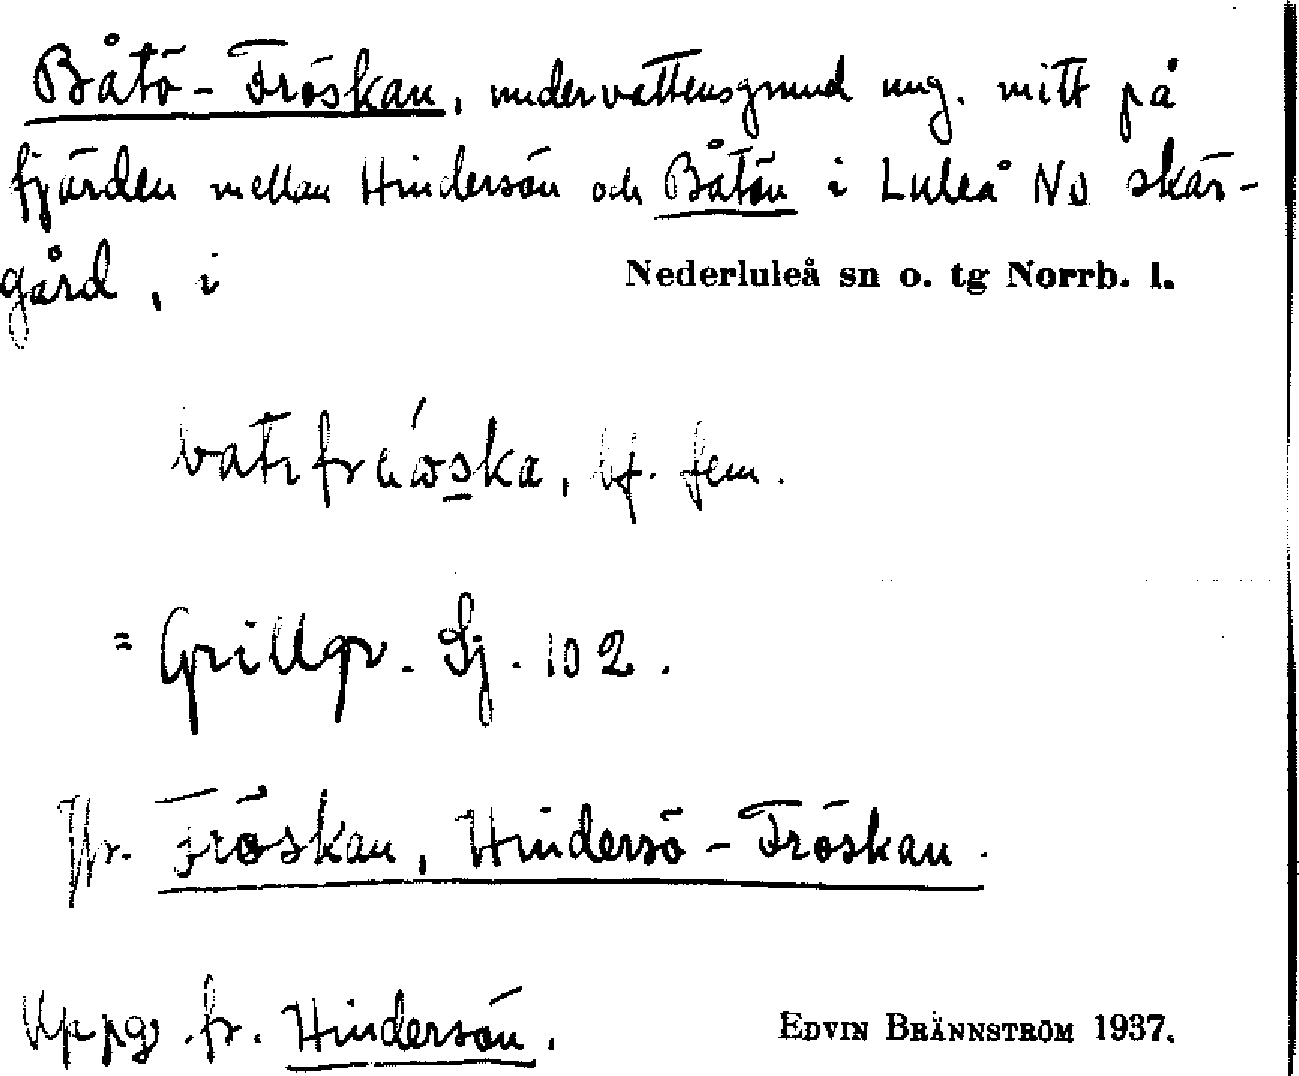 Båtö-Fröskan, undervattensgrund ung. mitt på
fjärden mellan Hindersön och Båtön i Luleå NO skär-
gård, i Nederluleå sn o. tg Norrb. l.
bf. fem.
= Grillgr. Sj. 102.
Jfr. Fröskan, Hindersö-Fröskan.
Uppg. fr. Hindersön. EDVIN BRÄNNSTRÖM 1937.